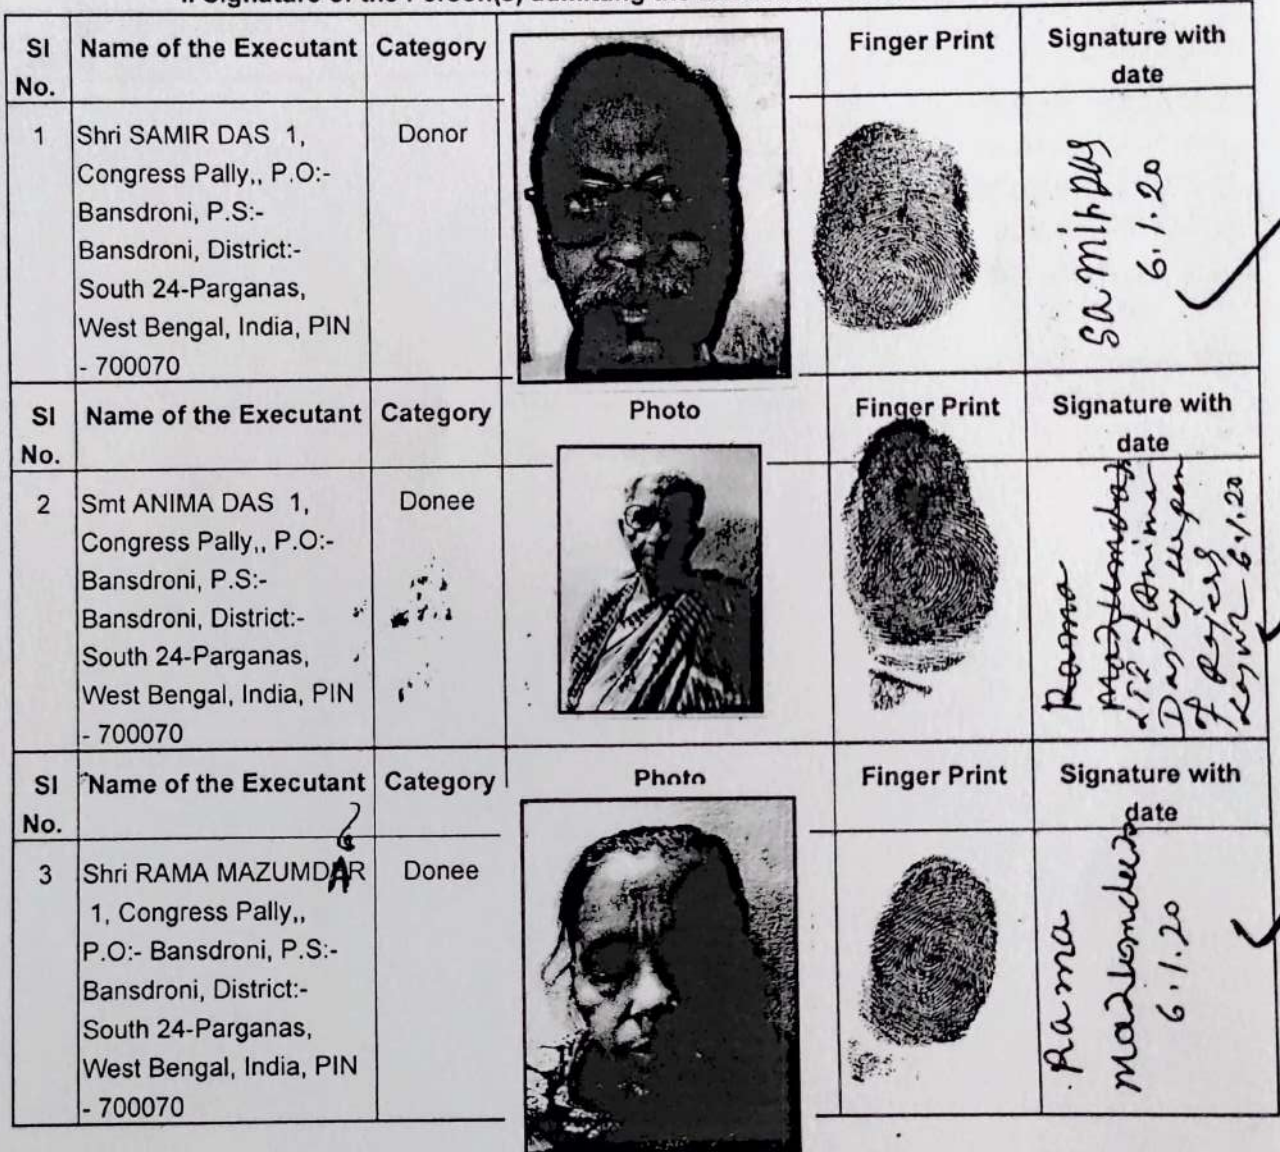 II. Signature of the Person(s) admitting the
SI No. Name of the Executant Category Finger Print Signature with date
1 Shri SAMIR DAS 1, Donor
Congress Pally,, P.O:-
Bansdroni, P.S:-
Bansdroni, District:-
South 24-Parganas,
West Bengal, India, PIN
- 700070
Samir Das
6.1.20
SI No. Name of the Executant Category Photo Finger Print Signature with date
2 Smt ANIMA DAS 1, Donee
Congress Pally,, P.O:-
Bansdroni, P.S:-
Bansdroni, District:-
South 24-Parganas,
West Bengal, India, PIN
- 700070
Rama
Mazumdar
LTI of Anima
Das by the pen
of
6.1.20
SI No. Name of the Executant Category Photo Finger Print Signature with date
3 Shri RAMA MAZUMDAR Donee
1, Congress Pally,,
P.O:- Bansdroni, P.S:-
Bansdroni, District:-
South 24-Parganas,
West Bengal, India, PIN
- 700070
Rama
Mazumdar
6.1.20